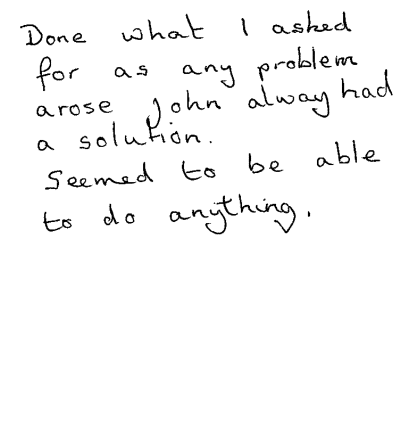 Done what I asked
for as any problem
arose John alway had
a solution.
Seemed to be able
to do anything.